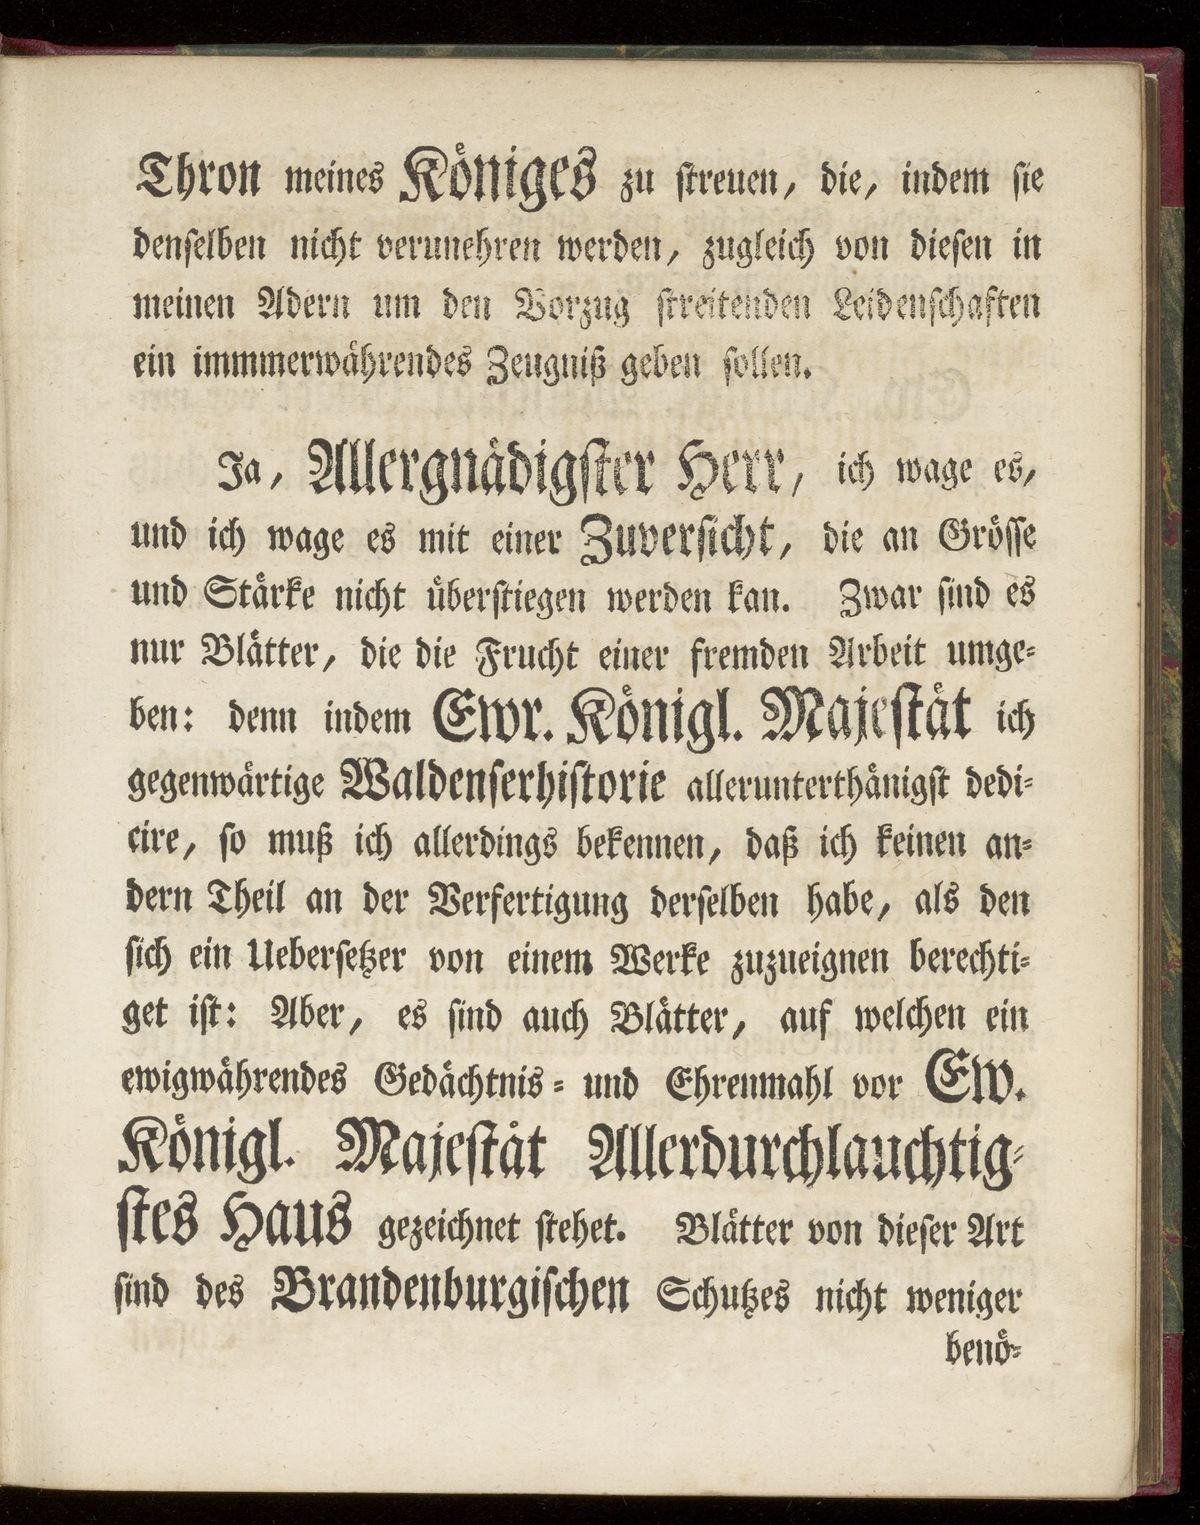 Thron meines Königes zu streuen, die, indem sie
denselben nicht verunehren werden, zugleich von diesen in
meinen Adern um den Vorzug streitenden Leidenschaften
ein immmerwährendes Zeugniß geben sollen.
Ja, Allergnädigster Herr, ich wage es,
und ich wage es mit einer Zuversicht, die an Grösse
und Stärke nicht überstiegen werden kan. Zwar sind es
nur Blätter, die die Frucht einer fremden Arbeit umge-
ben: denn indem Ewr. Königl. Majestät ich
gegenwärtige Waldenserhistorie allerunterthänigst dedi-
cire, so muß ich allerdings bekennen, daß ich keinen an-
dern Theil an der Verfertigung derselben habe, als den
sich ein Uebersetzer von einem Werke zuzueignen berechti-
get ist: Aber, es sind auch Blätter, auf welchen ein
ewigwährendes Gedächtnis- und Ehrenmahl vor Ew.
Königl. Majestät Allerdurchlauchtig-
stes Haus gezeichnet stehet. Blätter von dieser Art
sind des Brandenburgischen Schutzes nicht weniger
benö-